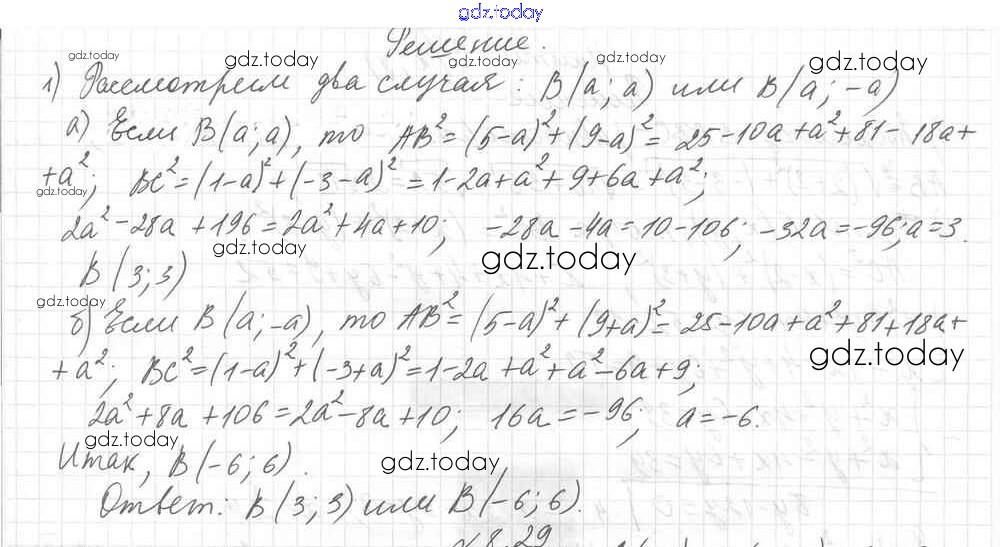 gdz.today
Решение.
gdz.today gdz.today gdz.today gdz.today
1) Рассмотрим два случая: B(a; a) или B(a; -a)
а) Если B(a; a), то AB²=(5-a)²+(9-a)²=25-10a+a²+81-18a+
gdz.today
+a²; BC²=(1-a)²+(-3-a)²=1-2a+a²+9+6a+a²;
2a²-28a+196=2a²+4a+10; -28a-4a=10-106; -32a=-96; a=3.
gdz.today gdz.today
B(3; 3)
gdz.today
б) Если B(a; -a), то AB²=(5-a)²+(9+a)²=25-10a+a²+81+18a+
gdz.today
+a²; BC²=(1-a)²+(-3+a)²=1-2a+a²+a²-6a+9;
2a²+8a+106=2a²-8a+10; 16a=-96; a=-6.
gdz.today
Итак, B(-6; 6).
gdz.today
Ответ: B(3; 3) или B(-6; 6).
8.29